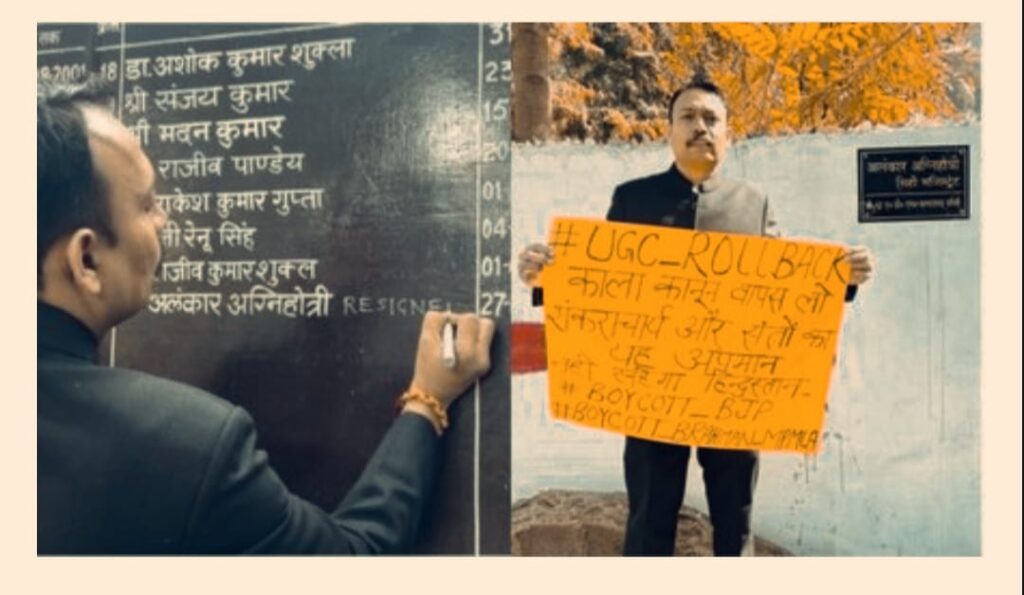 तक
31
डा.अशोक कुमार शुक्ला
-2001
18
23
श्री संजय कुमार
15
मदन कुमार
20
राजीव पाण्डेय
01
राकेश कुमार गुप्ता
04
रेनू सिंह
01-
राजीव कुमार शुक्ल
अलंकार अग्निहोत्री RESIGNE
27-
#UGC_ROLLBACK
काला कानून वापस लो
शंकराचार्य और संतों का
यह अपमान
नहीं सहेगा हिन्दुस्तान-
# BOYCOTT_BJP
#BOYCOTT_BRAHMAN_MPMLA
अलंकार अग्निहोत्री
सिटी मजिस्ट्रेट